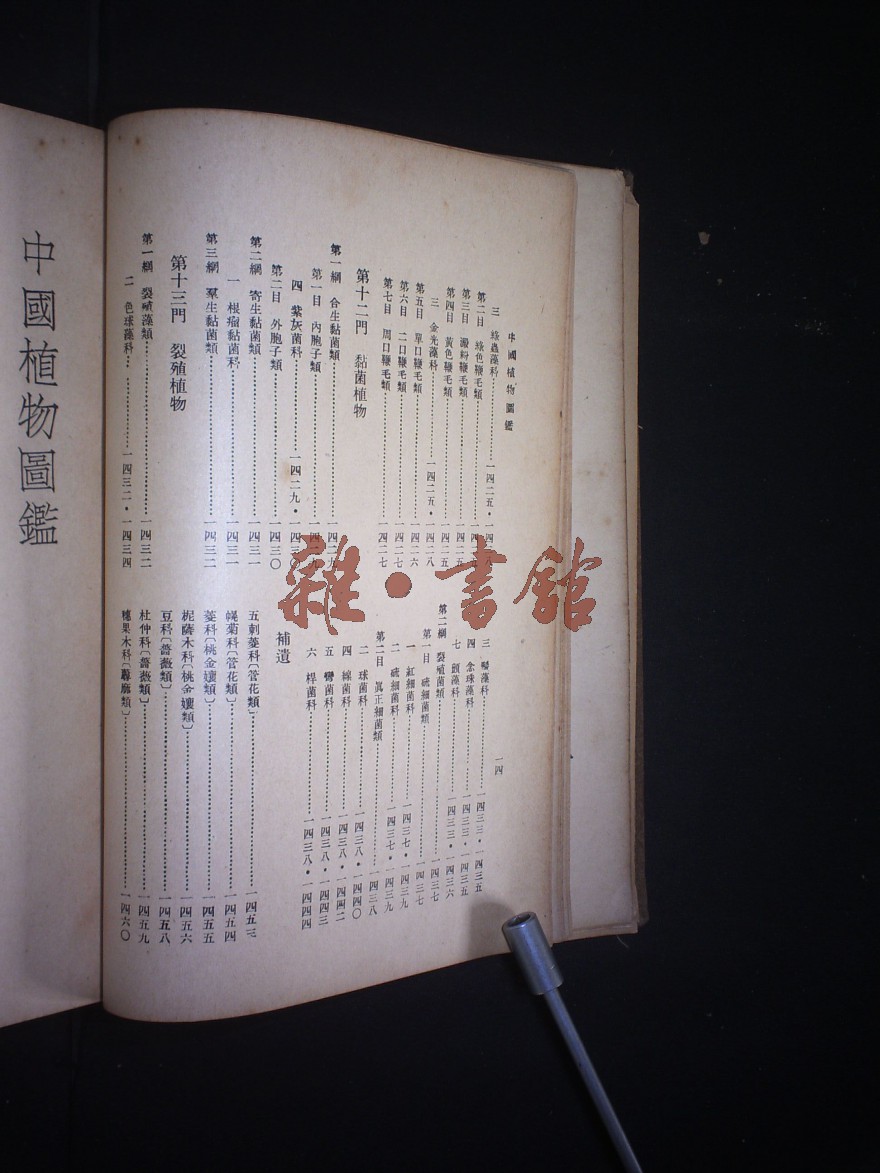 中國植物圖鑑
三 綠蟲藻科 一四二五・一四
第二目 綠色鞭毛類 一四
第三目 澱粉鞭毛類 一四二五
第四目 黃色鞭毛類 一四二五
三 金光藻科 一四二五・一四二八
第五目 單口鞭毛類 一四二六
第六目 二口鞭毛類 一四二七
第七目 周口鞭毛類 一四二七
第十二門 黏菌植物
第一綱 合生黏菌類 一四二九
第一目 內胞子類 一四二九
四 紫灰菌科 一四二九・一四三〇
第二目 外胞子類 一四三〇
第二綱 寄生黏菌類 一四三一
一 根瘤黏菌科 一四三一
第三綱 羣生黏菌類 一四三二
第十三門 裂殖植物
第一綱 裂殖藻類 一四三二
二 色球藻科 一四三二・一四三四
三 藻科 一四三三・一四三五
四 念珠藻科 一四三三・一四三五
七 顫藻科 一四三三・一四三六
第二綱 裂殖菌類 一四三七
第一目 硫細菌類 一四三七
一 紅細菌科 一四三七・一四三九
二 硫細菌科 一四三七・一四三九
第二目 眞正細菌類 一四三八
二 球菌科 一四三八・一四四〇
四 線菌科 一四三八・一四四二
五 彎菌科 一四三八・一四四三
六 桿菌科 一四三八・一四四四
補遺
五刺菱科〔管花類〕 一四五三
幌菊科〔管花類〕 一四五四
菱科〔桃金孃類〕 一四五五
柅薩木科〔桃金孃類〕 一四五六
豆科〔薔薇類〕 一四五八
杜仲科〔薔薇類〕 一四五九
穗果木科〔蕁麻類〕 一四六〇
一四
中國植物圖鑑
雜・書館